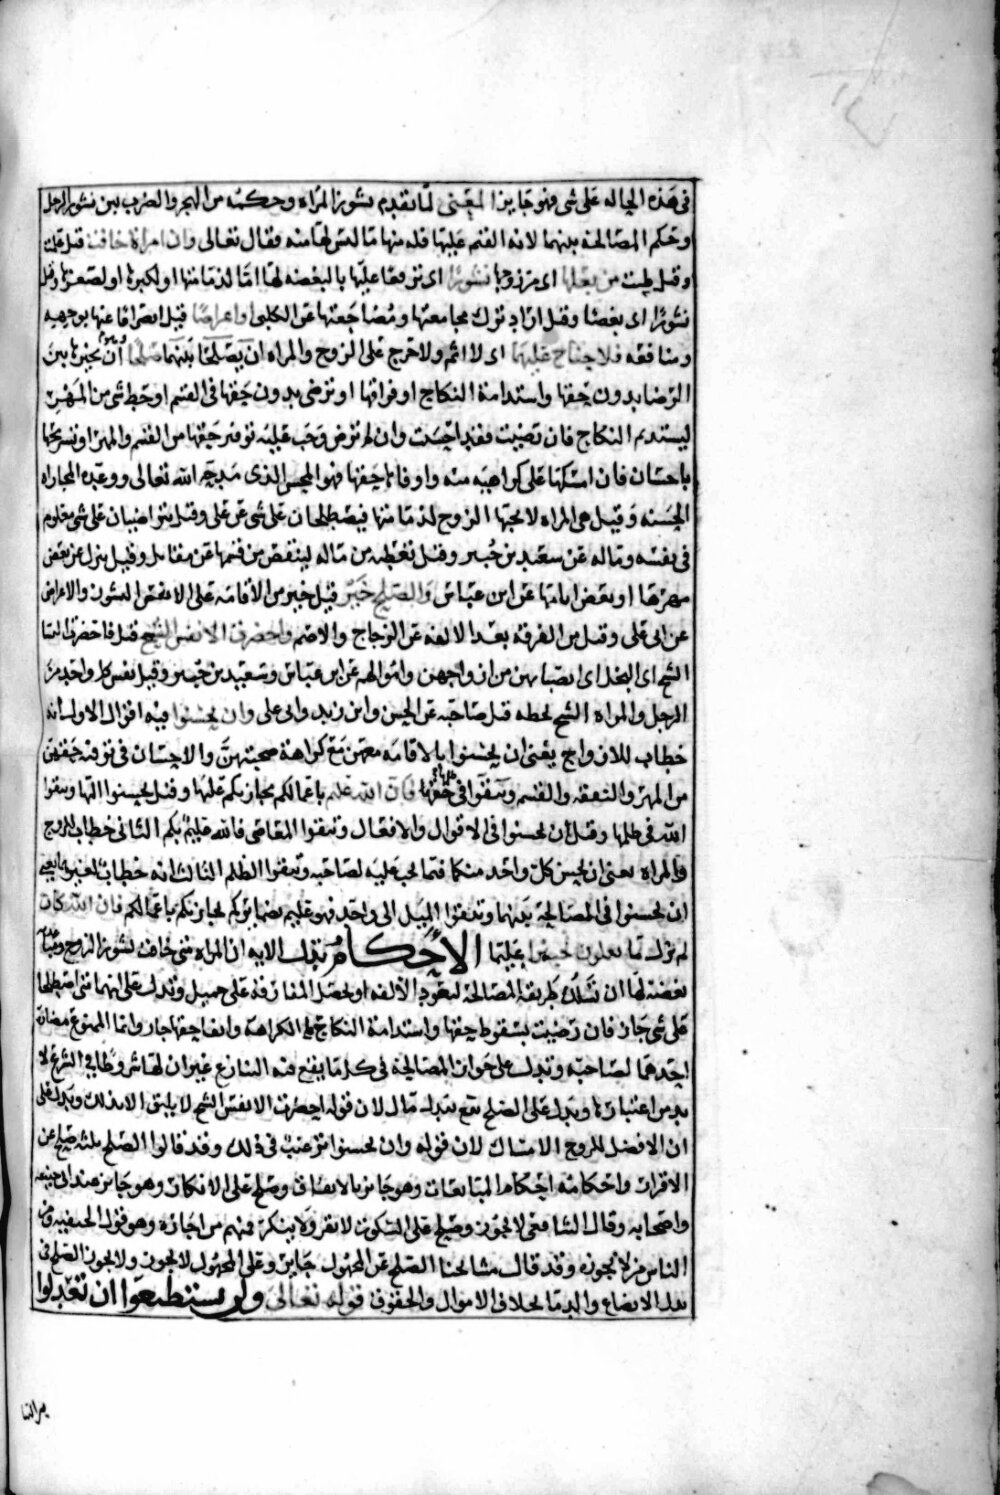 في هذه الحاله على شي فهو جايز المعنى لما تقدم نشوز المراه وحكمه من الهجر والضرب بين نشوز الرجل
وحكم المصالحة بينهما لانه القيم عليها فله منها ما ليس لها منه فقال تعالى وان امراة خافت قيل علمت
وقيل ظنت من بعلها اي من زوجها نشوزا اي ترفعا عليها بالبغضه لها اما لذمامتها او لكبرها او لصغرها وقيل
نشوزا اي بغضا وقيل اراد ترك مجامعتها ومضاجعتها عن الكلبي او اعراضا قيل انصرافا عنها بوجهه
ومنافعه فلا جناح عليهما اي لا اثم ولا حرج على الزوج والمراه ان يصلحا بينهما صلحا ان يخيرها بين
الرضا بدون حقها واستدامة النكاح او فراقها او ترضى بدون حقها في القسم او حط شي من المهر
ليستديم النكاح فان رضيت فقد احسنت وان لم ترض وجب عليه توفير حقها من القسم والمهر او تسريحها
باحسان فان امسكها على كراهيه منه واوفاها حقها فهو المحسن الذي مدحه الله تعالى ووعده المجازاه
الحسنه وقيل هي المراه لا يحبها الزوج لذمامتها فيصطلحان على شي عن علي وقيل يتراضيان على شي معلوم
في نفسه وماله عن سعيد بن جبير وقيل تعطيه من ماله لينقص من قسمها عن مقاتل وقيل ينزل عن بعض
مهرها او بعض ايامها عن ابن عباس والصلح خير قيل خير من الاقامه على النشوز والاعراض
عن ابي علي وقيل من الفرقه بعد الالفه عن الزجاج والاصم واحضرت الانفس الشح قيل فاحضرت النسا
الشح اي البخل اي انصبايهن من ازواجهن واموالهم عن ابن عباس وسعيد بن جبير وقيل نفس كل واحد من
الرجل والمراه الشح لحظه قبل صاحبه عن الحسن وابن زيد وابي علي وان يحسنوا فيه اقوال الاول انه
خطاب للازواج يعني ان يحسنوا بالاقامه معهن مع كراهة صحبتهن والاحسان في توفيه حقوقهن
من المهر والنفقه والقسم وتتقوا في حقها فان الله عليم باعمالكم يجازيكم عليها وقيل يحسنوا اليها ويتقوا
الله في ظلمها وقيل ان يحسنوا في الاقوال والافعال وتتقوا المعاصي فالله عليم بكم الثاني خطاب للزوج
والمراه يعني ان يحسن كل واحد منكما فيما يجب عليه لصاحبه وتتقوا الظلم الثالث انه خطاب لغيرهما يعني
ان يحسنوا في المصالحة بينهما وتتقوا الميل الى واحد فهو عليم بضمايركم يجازيكم باعمالكم فان الله كان
لم يزل بما يعملون خبيرا عليما الأحكام تدل الايه ان المراه متى خافت نشوز الزوج
بغضه لها ان تسلك طريقة المصالحة ليعود الالفه او يحصل المفارقه على جميل وتدل على انهما متى اصطلحا
على شي جاز فان رضيت بسقوط حقها واستدامة النكاح مع الكراهه وايفا حقها جاز وانما الممنوع مضارة
احدهما لصاحبه وتدل على جواز المصالحة في كل ما يقع فيه التنازع غير ان لها شروطا في الشرع لا
بد من اعتبارها ويدل على الصلح يقع ببدل مال لان قوله احضرت الانفس الشح لا يليق الا بذلك ويدل على
ان الافضل للزوج الامساك لان قوله وان تحسنوا ترغيب في ذلك وقد قالوا الصلح ثلثه صلح عن
الاقرار واحكامه احكام المبايعات وهو جايز بالاتفاق وصلح على الانكار وهو جايز عند ابي حنيفه
واصحابه وقال الشافعي لا يجوز وصلح على السكوت لا يقر ولا ينكر فمنهم من اجازه وهو قول الحنفيه ومن
الناس من لا يجوزه وقد قال مشايخنا الصلح عن المجهول جايز وعلى المجهول لا يجوز ولا يجوز الصلح في
بدل الابضاع والدما بخلاف الاموال والحقوق قوله تعالى ولن تستطيعوا ان تعدلوا
بين النسا